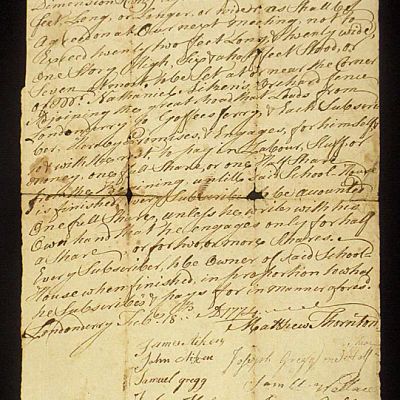 feet Long, or Longer, or wider as shall be
agreed on at Our next meeting, not to
Exceed twenty two feet Long, & twenty wide,
One Story High, Six & a half feet Stood, or
Seven Utmost, to be Set at or near the Corner
of Mr. Nathaniel Orchard fence
Adjoining the great Road that Leads from
Londonderry to Goffes ferry, & Each Subscri
ber, Hereby Promises, & Engages for himself
to pay in Labour, Stuff or
money, one a Share, or one Half Share
until Said School House
is finished, Every Subscriber to be accounted
One full Share, unless he writes with his
Own hand that he Engages only for half
a Share, or for two or more Shares.
Every Subscriber, to be Owner of Said School
House when finished, in proportion to what
he Subscribes & pays for in manner afores.d
Londonderry Feb. 18th 1774
Matthew Thornton
James
John Aiken
Joseph Gregg
Samuel Gregg
Sam
John